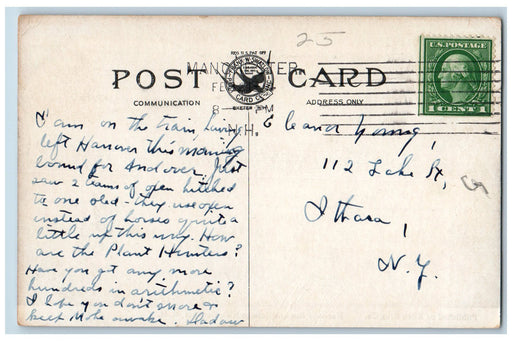 25
MANCHESTER
FE
8 — PM
N.H.
POST CARD
COMMUNICATION
ADDRESS ONLY
U.S. POSTAGE
1 CENT 1
I am on the train, having
left Hanover this morning
bound for Andover. Just
saw 2 teams of oxen hitched
to one sled - they use oxen
instead of horses quite a
little up this way. How
are the Plant Hunters?
Have you got any more
hundreds in arithmetic?
I hope you don't snore &
keep awake.
Eleanor Young,
112 Lake St,
Ithaca,
N.Y.